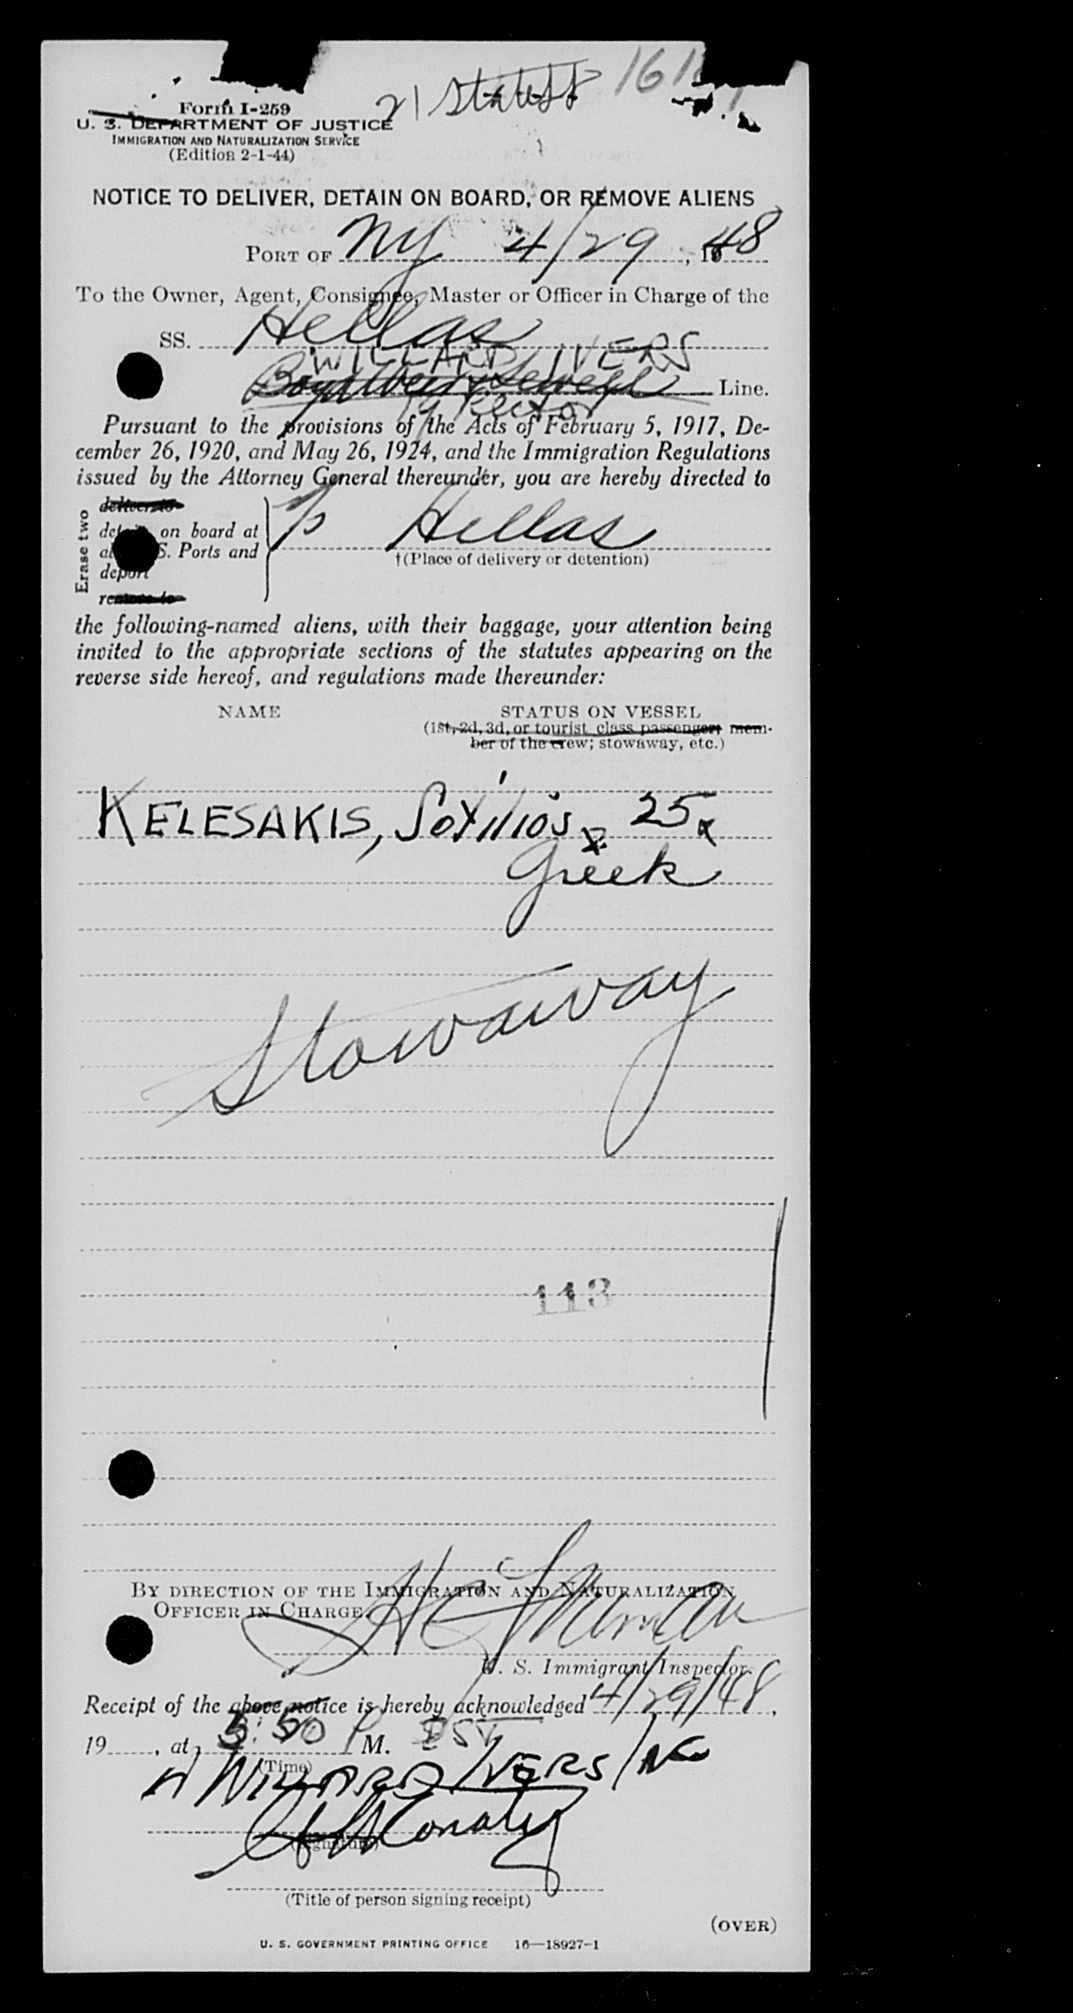 21 States
Form I-259
U. S. DEPARTMENT OF JUSTICE
IMMIGRATION AND NATURALIZATION SERVICE
(Edition 2-1-44)
NOTICE TO DELIVER, DETAIN ON BOARD, OR REMOVE ALIENS
PORT OF NY 4/29, 1948
To the Owner, Agent, Consignee, Master or Officer in Charge of the
SS. Hellas
WILLARD IVERS
Line.
Pursuant to the provisions of the Acts of February 5, 1917, De-
cember 26, 1920, and May 26, 1924, and the Immigration Regulations
issued by the Attorney General thereunder, you are hereby directed to
Erase two
deliver to
detain on board at
all U. S. Ports and
deport
remove to
Hellas
†(Place of delivery or detention)
the following-named aliens, with their baggage, your attention being
invited to the appropriate sections of the statutes appearing on the
reverse side hereof, and regulations made thereunder:
NAME STATUS ON VESSEL
(1st, 2d, 3d, or tourist class passenger; mem-
ber of the crew; stowaway, etc.)
KELESAKIS, 25
Greek
Stowaway
113
BY DIRECTION OF THE IMMIGRATION AND NATURALIZATION
OFFICER IN CHARGE.
U. S. Immigrant Inspector.
Receipt of the above notice is hereby acknowledged 4/29/48,
19, at 5:50 P M. DST
(Time)
WILLARD IVERS INC
(Signature)
(Title of person signing receipt)
(OVER)
U. S. GOVERNMENT PRINTING OFFICE 16—18927-1